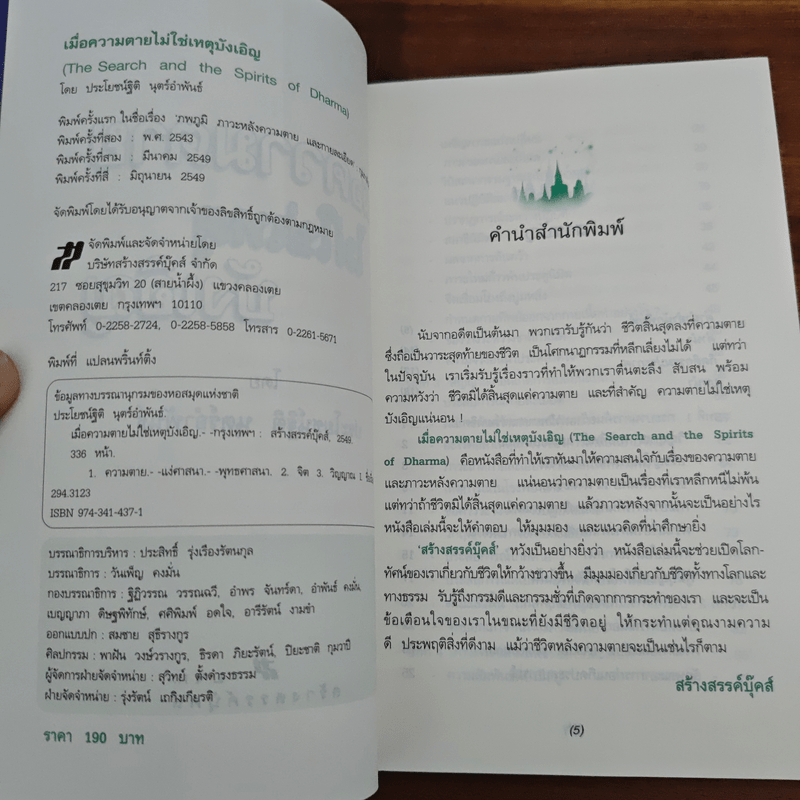 เมื่อความตายไม่ใช่เหตุบังเอิญ
(The Search and the Spirits of Dharma)
โดย ประโยชน์ฐิติ นุตร์อำพันธ์
พิมพ์ครั้งแรก ในชื่อเรื่อง 'ภพภูมิ ภาวะหลังความตาย และกายละเอียด'
พิมพ์ครั้งที่สอง : พ.ศ. 2543
พิมพ์ครั้งที่สาม : มีนาคม 2549
พิมพ์ครั้งที่สี่ : มิถุนายน 2549
จัดพิมพ์โดยได้รับอนุญาตจากเจ้าของลิขสิทธิ์ถูกต้องตามกฎหมาย
จัดพิมพ์และจัดจำหน่ายโดย
บริษัทสร้างสรรค์บุ๊คส์ จำกัด
217 ซอยสุขุมวิท 20 (สายน้ำผึ้ง) แขวงคลองเตย
เขตคลองเตย กรุงเทพฯ 10110
โทรศัพท์ 0-2258-2724, 0-2258-5858 โทรสาร 0-2261-5671
พิมพ์ที่ แปลนพริ้นท์ติ้ง
ข้อมูลทางบรรณานุกรมของหอสมุดแห่งชาติ
ประโยชน์ฐิติ นุตร์อำพันธ์.
เมื่อความตายไม่ใช่เหตุบังเอิญ.- -กรุงเทพฯ : สร้างสรรค์บุ๊คส์, 2549.
336 หน้า.
1. ความตาย.- -แง่ศาสนา.- -พุทธศาสนา. 2. จิต 3. วิญญาณ I. ชื่อเรื่อง
294.3123
ISBN 974-341-437-1
บรรณาธิการบริหาร : ประสิทธิ์ รุ่งเรืองรัตนกุล
บรรณาธิการ : วันเพ็ญ คงมั่น
กองบรรณาธิการ : ฐิฏิวรรณ วรรณฉวี, อำพร จันทร์ดา, อำพันธ์ คงมั่น,
เบญญาภา ดิษฐพิทักษ์, ศศิพิมพ์ อดใจ, อารีรัตน์ งามขำ
ออกแบบปก : สมชาย สุธีรางกูร
ศิลปกรรม : พาฝัน วงษ์วรางกูร, ธิรดา ภิยะรัตน์, ปิยะชาติ กุมวาปี
ผู้จัดการฝ่ายจัดจำหน่าย : สุวิทย์ ตั้งดำรงธรรม
ฝ่ายจัดจำหน่าย : รุ่งรัตน์ เถกิงเกียรติ
ราคา 190 บาท
คำนำสำนักพิมพ์
นับจากอดีตเป็นต้นมา พวกเรารับรู้กันว่า ชีวิตสิ้นสุดลงที่ความตาย
ซึ่งถือเป็นวาระสุดท้ายของชีวิต เป็นโศกนาฏกรรมที่หลีกเลี่ยงไม่ได้ แต่ทว่า
ในปัจจุบัน เราเริ่มรับรู้เรื่องราวที่ทำให้พวกเราตื่นตะลึง สับสน พร้อม
ความหวังว่า ชีวิตมิได้สิ้นสุดแค่ความตาย และที่สำคัญ ความตายไม่ใช่เหตุ
บังเอิญแน่นอน !
เมื่อความตายไม่ใช่เหตุบังเอิญ (The Search and the Spirits
of Dharma) คือหนังสือที่ทำให้เราหันมาให้ความสนใจกับเรื่องของความตาย
และภาวะหลังความตาย แน่นอนว่าความตายเป็นเรื่องที่เราหลีกหนีไม่พ้น
แต่ทว่าถ้าชีวิตมิได้สิ้นสุดแค่ความตาย แล้วภาวะหลังจากนั้นจะเป็นอย่างไร
หนังสือเล่มนี้จะให้คำตอบ ให้มุมมอง และแนวคิดที่น่าศึกษายิ่ง
'สร้างสรรค์บุ๊คส์' หวังเป็นอย่างยิ่งว่า หนังสือเล่มนี้จะช่วยเปิดโลก-
ทัศน์ของเราเกี่ยวกับชีวิตให้กว้างขวางขึ้น มีมุมมองเกี่ยวกับชีวิตทั้งทางโลกและ
ทางธรรม รับรู้ถึงกรรมดีและกรรมชั่วที่เกิดจากการกระทำของเรา และจะเป็น
ข้อเตือนใจของเราในขณะที่ยังมีชีวิตอยู่ ให้กระทำแต่คุณงามความ
ดี ประพฤติสิ่งที่ดีงาม แม้ว่าชีวิตหลังความตายจะเป็นเช่นไรก็ตาม
สร้างสรรค์บุ๊คส์
(5)